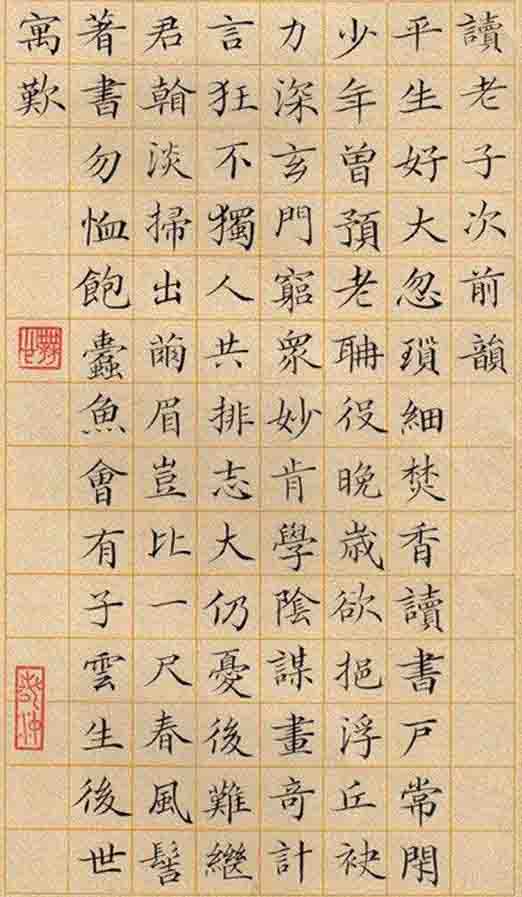 讀老子次前韻
平生好大忽瑣細焚香讀書戶常閇
少年曾預老聃役晚歲欲挹浮丘袂
力深玄門窮眾妙肯學陰謀畫奇計
言狂不獨人共排志大仍憂後難繼
君翰淡掃出繭眉豈比一尺春風髻
著書勿恤飽蠹魚會有子雲生後世
寓歎